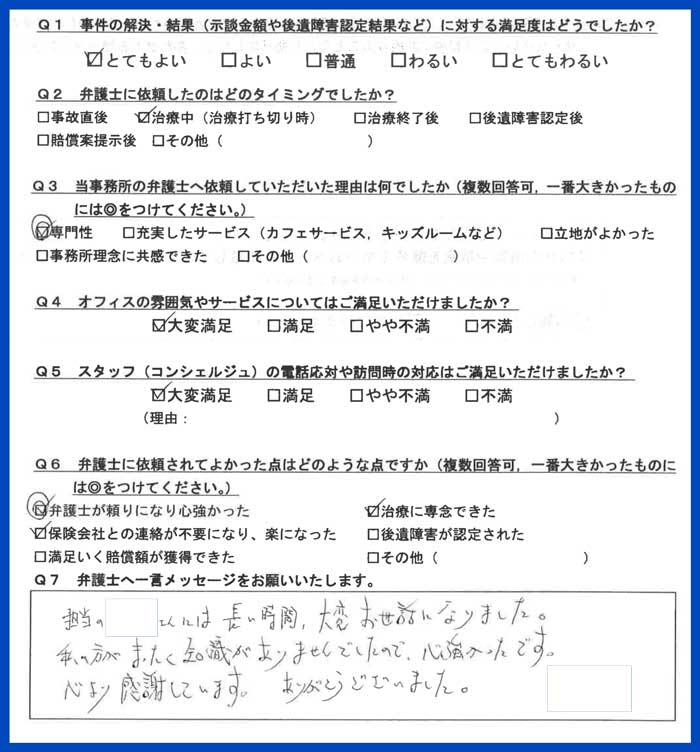 Q1 事件の解決・結果(示談金額や後遺障害認定結果など)に対する満足度はどうでしたか?
☑とてもよい □よい □普通 □わるい □とてもわるい
Q2 弁護士に依頼したのはどのタイミングでしたか?
□事故直後 ☑治療中(治療打ち切り時) □治療終了後 □後遺障害認定後
□賠償案提示後 □その他( )
Q3 当事務所の弁護士へ依頼していただいた理由は何でしたか(複数回答可,一番大きかったもの
には◎をつけてください。)
☑専門性 □充実したサービス(カフェサービス,キッズルームなど) □立地がよかった
□事務所理念に共感できた □その他( )
Q4 オフィスの雰囲気やサービスについてはご満足いただけましたか?
☑大変満足 □満足 □やや不満 □不満
Q5 スタッフ(コンシェルジュ)の電話応対や訪問時の対応はご満足いただけましたか?
☑大変満足 □満足 □やや不満 □不満
(理由: )
Q6 弁護士に依頼されてよかった点はどのような点ですか(複数回答可,一番大きかったものに
は◎をつけてください。)
☑弁護士が頼りになり心強かった ☑治療に専念できた
☑保険会社との連絡が不要になり、楽になった □後遺障害が認定された
□満足いく賠償額が獲得できた □その他( )
Q7 弁護士へ一言メッセージをお願いいたします。
担当の さんには長い時間,大変お世話になりました。
私の方がまったく知識がありませんでしたので、心強かったです。
心より感謝しています。 ありがとうございました。